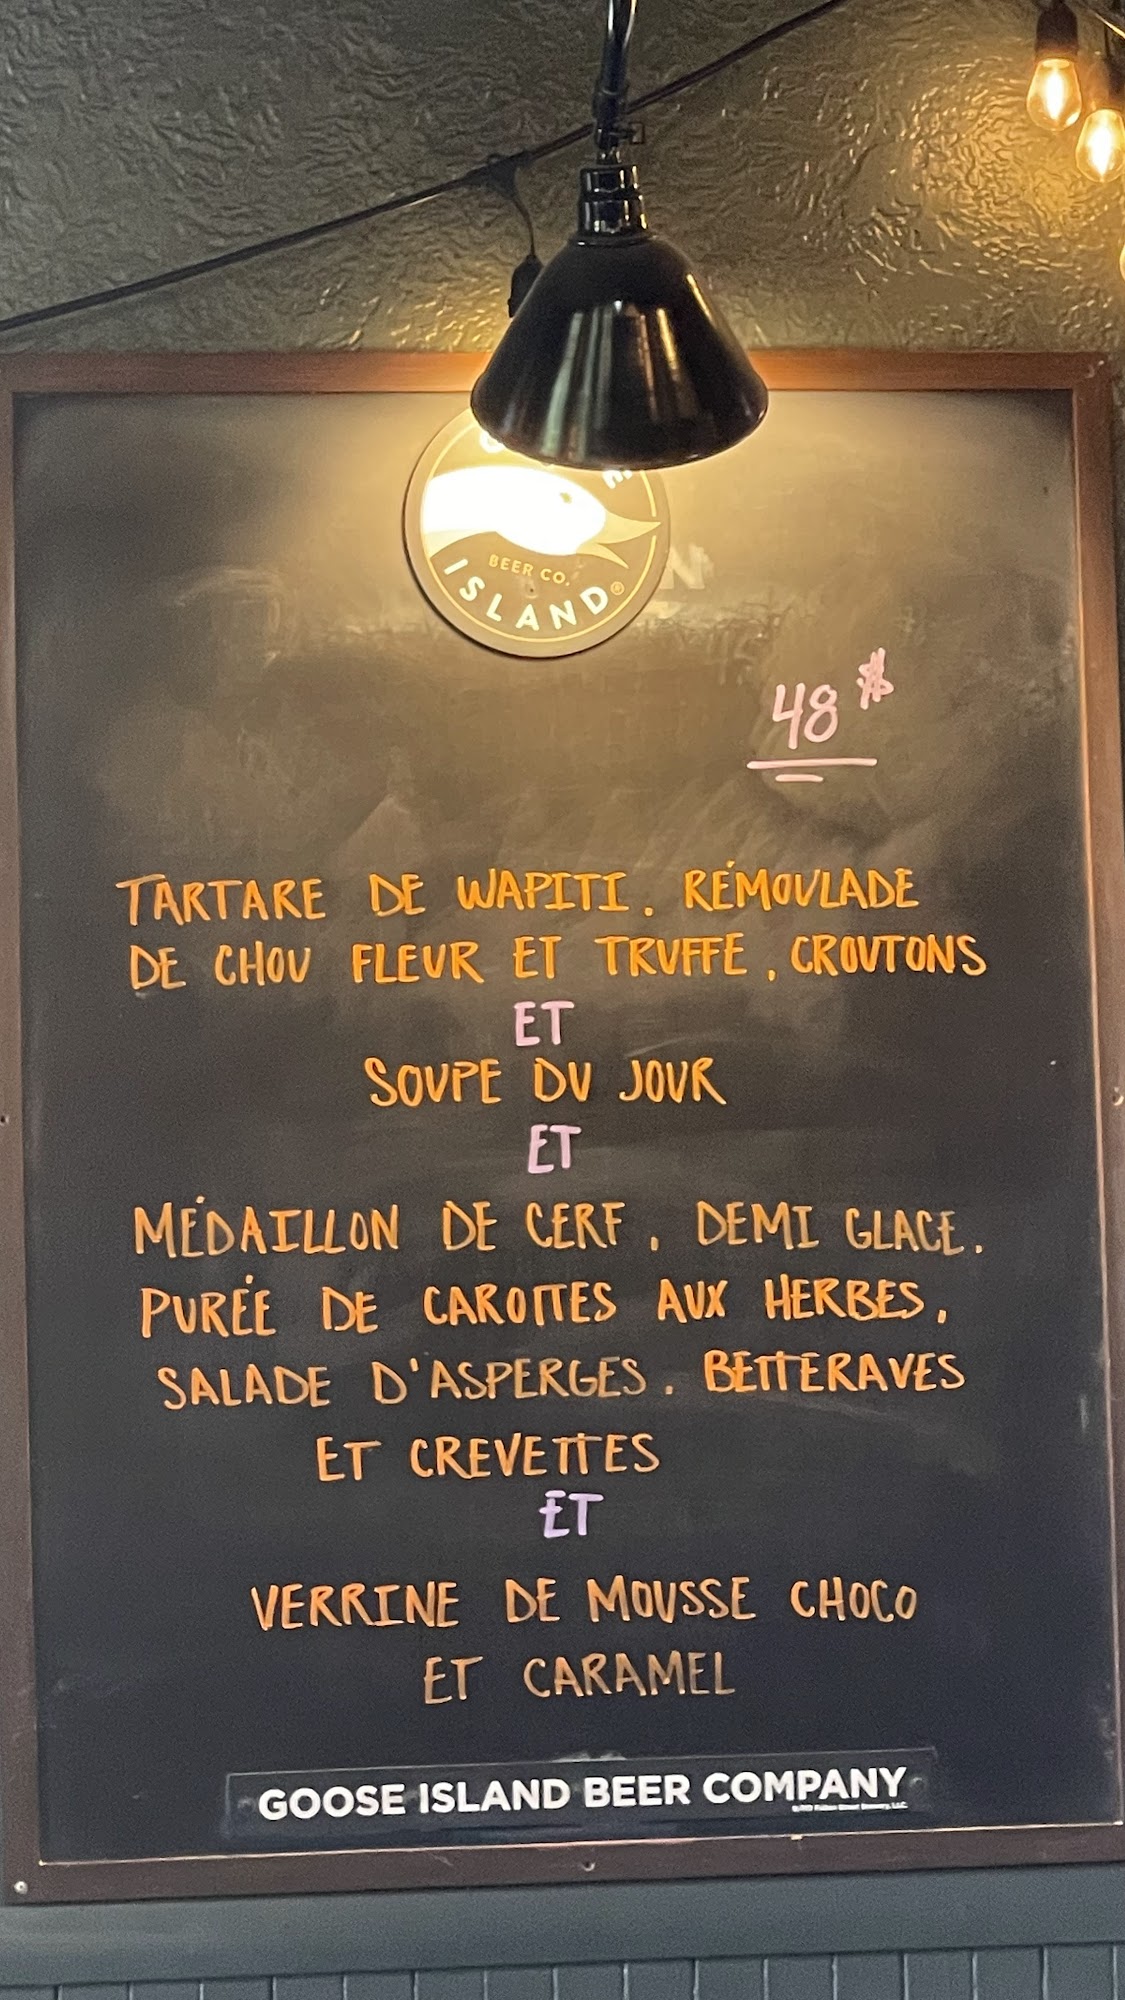 BEER CO.
ISLAND®
48$
TARTARE DE WAPITI, RÉMOULADE
DE CHOU FLEUR ET TRUFFE, CROUTONS
ET
SOUPE DU JOUR
ET
MÉDAILLON DE CERF, DEMI GLACE,
PURÉE DE CAROTTES AUX HERBES,
SALADE D'ASPERGES, BETTERAVES
ET CREVETTES
ET
VERRINE DE MOUSSE CHOCO
ET CARAMEL
GOOSE ISLAND BEER COMPANY